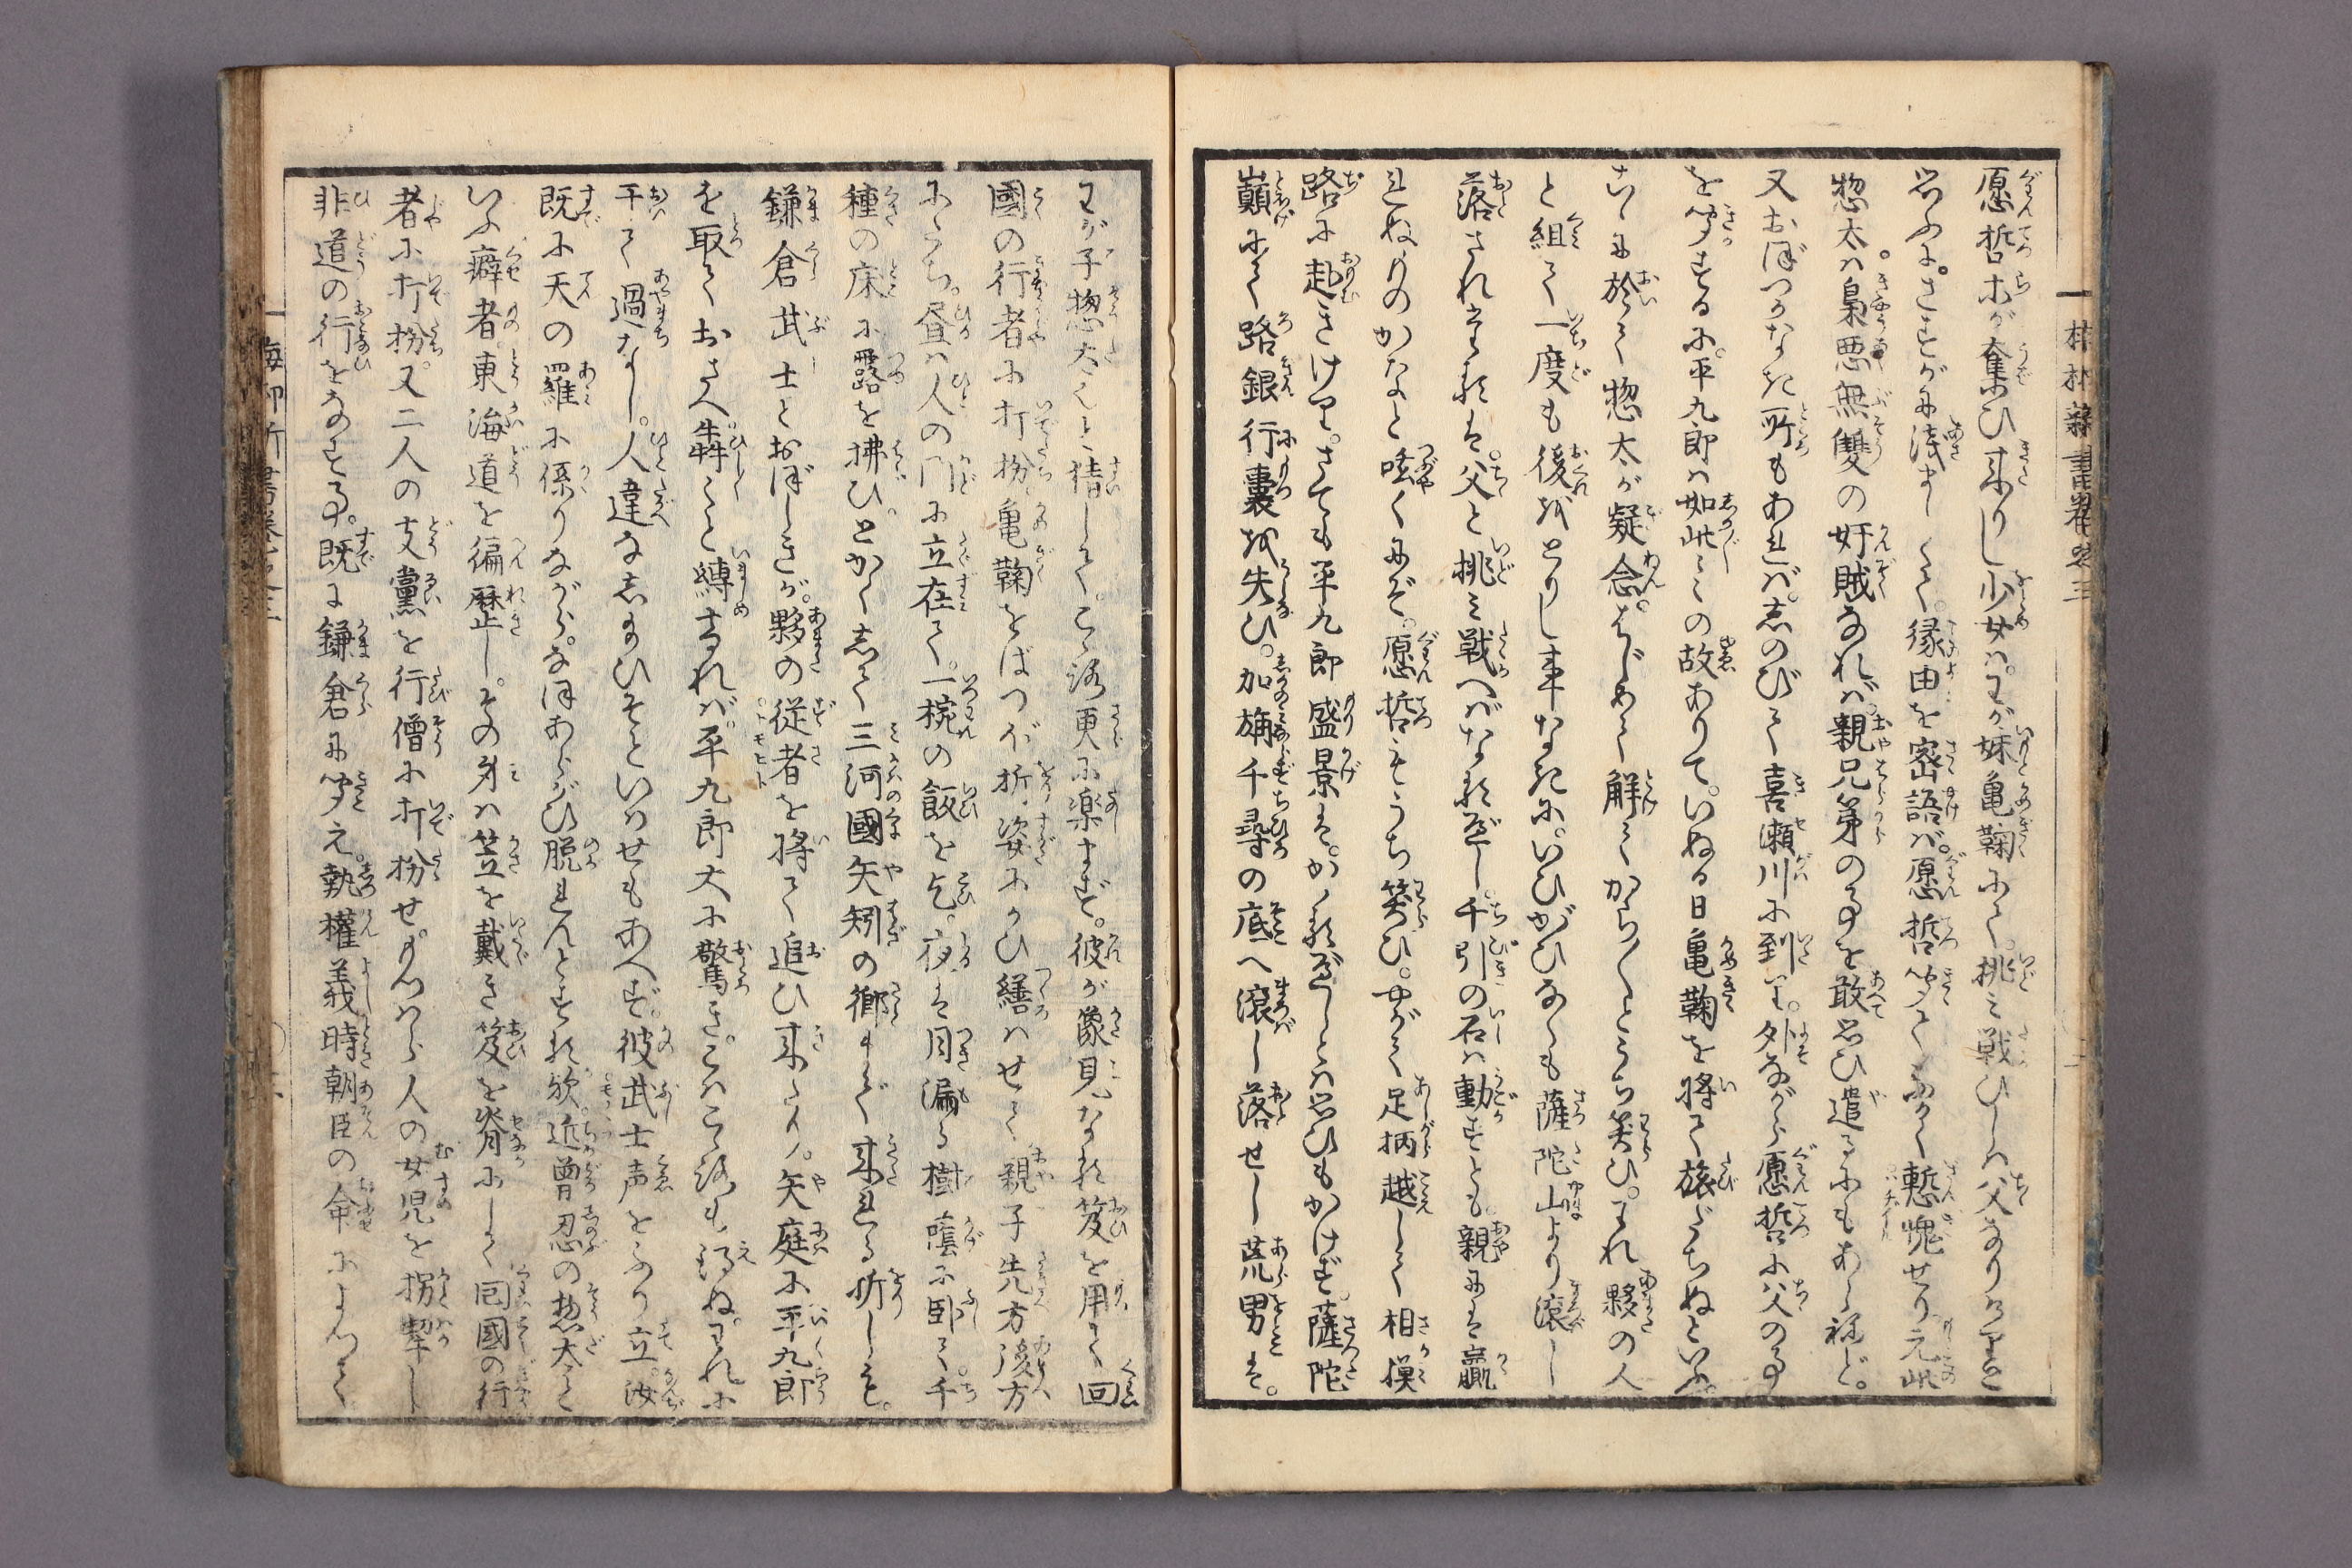 愿哲ホが奪ひ来りし少女は。わが妹亀鞠にて。挑み戦ひしハ父なりけりと
思ふに。さすがに浅ましくて。縁由を密語バ。愿哲聞てふかく慙愧せり。元此
惣太ハ梟悪無雙の奸賊なれバ。親兄弟の事を敢思ひ遣るにもあらねど。
又おぼつかなき所もあれバ。しのびて喜瀬川に到り。外ながら愿哲に父の事
を聞するに。平九郎ハ如此々々の故ありて。いぬる日亀鞠を将て旅だちぬといふ。
こゝに於て惣太が疑念。はじめて解てから〳〵とうち笑ひ。われ夥の人
と組て一度も後をとりし事なきに。いひがひなくも薩陀山より滾し
落されたるは。父と挑み戦へバなるべし。千引の石ハ動すとも。親には贏
れぬものかなと呟くにぞ。愿哲もうち笑ひ。やがて足柄越して相摸
路に赴きけり。さても平九郎盛景は。かゝるべしとハ思ひもかけず。薩陀
巓にて路銀行嚢を失ひ。加旃千尋の底へ滾し落せし荒男は。
わが子惣太なりと猜して。こゝろ更に楽まず。彼が像見なる笈を用て回
國の行者に打扮。亀鞠をばつぼ折姿にかひ繕はせて。親子先方後方
にたち。昼ハ人の門に立在て。一椀の飯を乞。夜は月漏る樹蔭に臥て。千
種の床に露を拂ひ。とかくして三河國矢矧の郷まで来れる折しも。
鎌倉武士とおぼしきが。夥の従者を将て追ひ来たり。矢庭に平九郎
を取ておさへ。犇々と縛るれバ。平九郎大に驚き。こハこゝろも得ぬ。われに
於て過なし。人違なしたまひそといはせもあへず。彼武士声をふり立。汝
既に天の羅に係りながら。なほあらがひ脱れんとするか欤。近曽忍の惣太と
いふ癖者。東海道を徧歴し。その身ハ笠を戴き笈を脊にして回國の行
者に打扮。又二人の支黨を行僧に打扮せ。もつはら人の女児を拐挈し
非道の行をなすよし。既に鎌倉に聞え。執權義時朝臣の命によつて